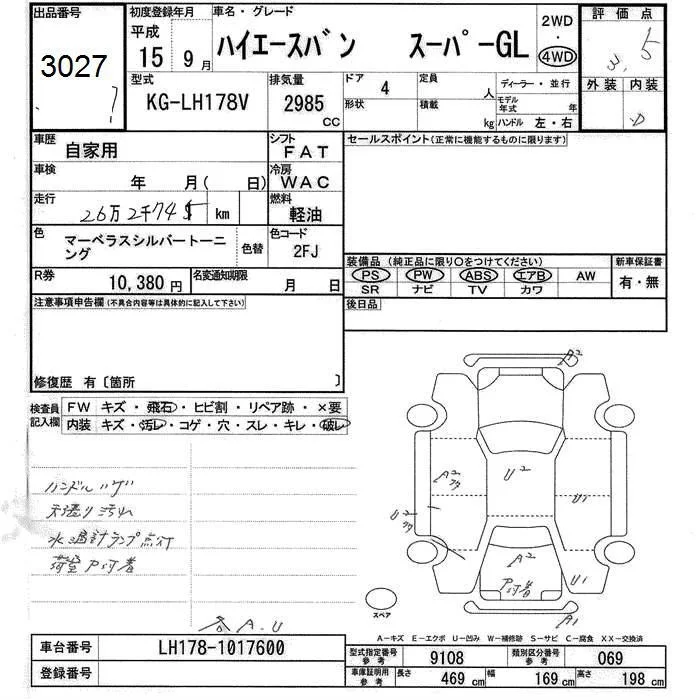 出品番号 初度登録年月 車名・グレード 2WD 評価点
3027 平成 15年 9月 ハイエースバン スーパーGL 4WD 3.5
型式 排気量 ドア 4 定員 人 ディーラー・並行 外装 内装
KG-LH178V 2985 CC 形状 積載 kg モデル年式 年 ハンドル 左・右 D
車歴 自家用 シフト FAT セールスポイント(正常に機能するものに限ります)
車検 年 月( 日) 冷房 WAC
走行 26万2千745 km 燃料 軽油
色 マーベラスシルバートーニング 色替 色コード 2FJ
装備品(純正品に限り○をつけてください) 新車保証書
PS PW ABS エアB AW 有・無
SR ナビ TV カワ
R券 10,380円 名変通知期限 月 日
注意事項申告欄(不具合内容等は具体的に記入して下さい) 後日品
修復歴 有〔箇所
検査員記入欄 FW キズ・飛石・ヒビ割・リペア跡・×要
内装 キズ・汚レ・コゲ・穴・スレ・キレ・破レ
A2
A2 U2 U1
U2
A2 U1
A1
ハンドルハゲ
天張り汚れ
水温計ランプ点灯
荷室P付着
P付着
スペア
各A.U
A-キズ E-エクボ U-凹み W-補修跡 S-サビ C-腐食 XX-交換済
車台番号 LH178-1017600 型式指定番号 参考 9108 類別区分番号 参考 069
登録番号 車庫証明用 参考 長さ 469 cm 幅 169 cm 高さ 198 cm